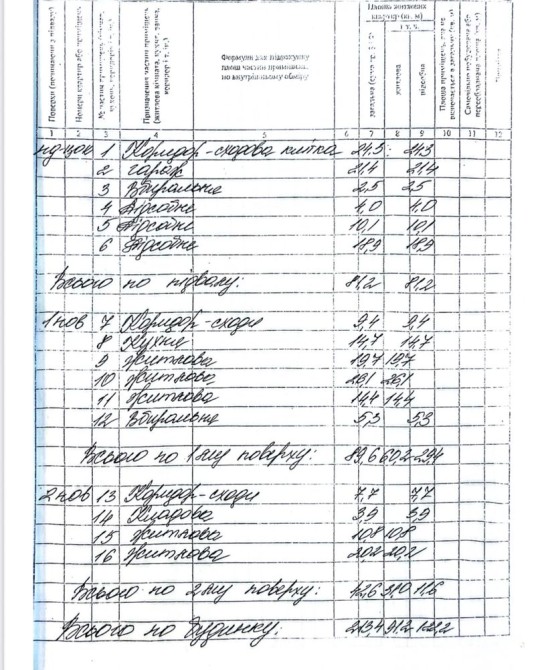 Поверхи (починаючи з підвалу)
Номери квартир або приміщень
Призначення частин приміщень (житлова кімната, кухня, ванна, коридор і т. ін.)
Формули для підрахунку площ частин приміщень по внутрішньому обміру
житлова
підсобна
1 2 3 4 5 6 7 8 9 10 11 12
1 Коридор-сходова клітка 24,3 24,3
2 гараж 21,4 21,4
3 Вбиральня 2,5 2,5
4 Підсобне 4,0 4,0
5 Підсобне 10,1 10,1
6 Підсобне 18,9 18,9
Всього по підвалу: 81,2 81,2
1 пов 7 Коридор-сходи 9,4 9,4
8 Кухня 14,7 14,7
9 Житлова 19,7 19,7
10 Житлова 26,1 26,1
11 Житлова 14,4 14,4
12 Вбиральня 5,3 5,3
Всього по 1му поверху: 89,6 60,2 29,4
2 пов 13 Коридор-сходи 7,7 7,7
14 Кладова 3,9 3,9
15 Житлова 10,8 10,8
16 Житлова 20,2 20,2
Всього по 2му поверху: 42,6 31,0 11,6
Всього по будинку: 213,4 91,2 122,2